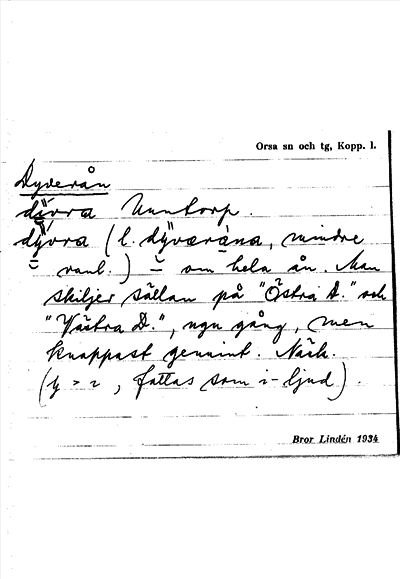 Orsa sn och tg, Kopp. l.
Dyverån
dÿvra Unntorp.
dÿvra (l. dÿværåna, mindre
vanl.) om hela ån. Man
skiljer sällan på "Östra D." och
"Västra D.", ngn gång, men
knappast genuint. Näck.
(y > i, fattas som i-ljud).
Bror Lindén 1934